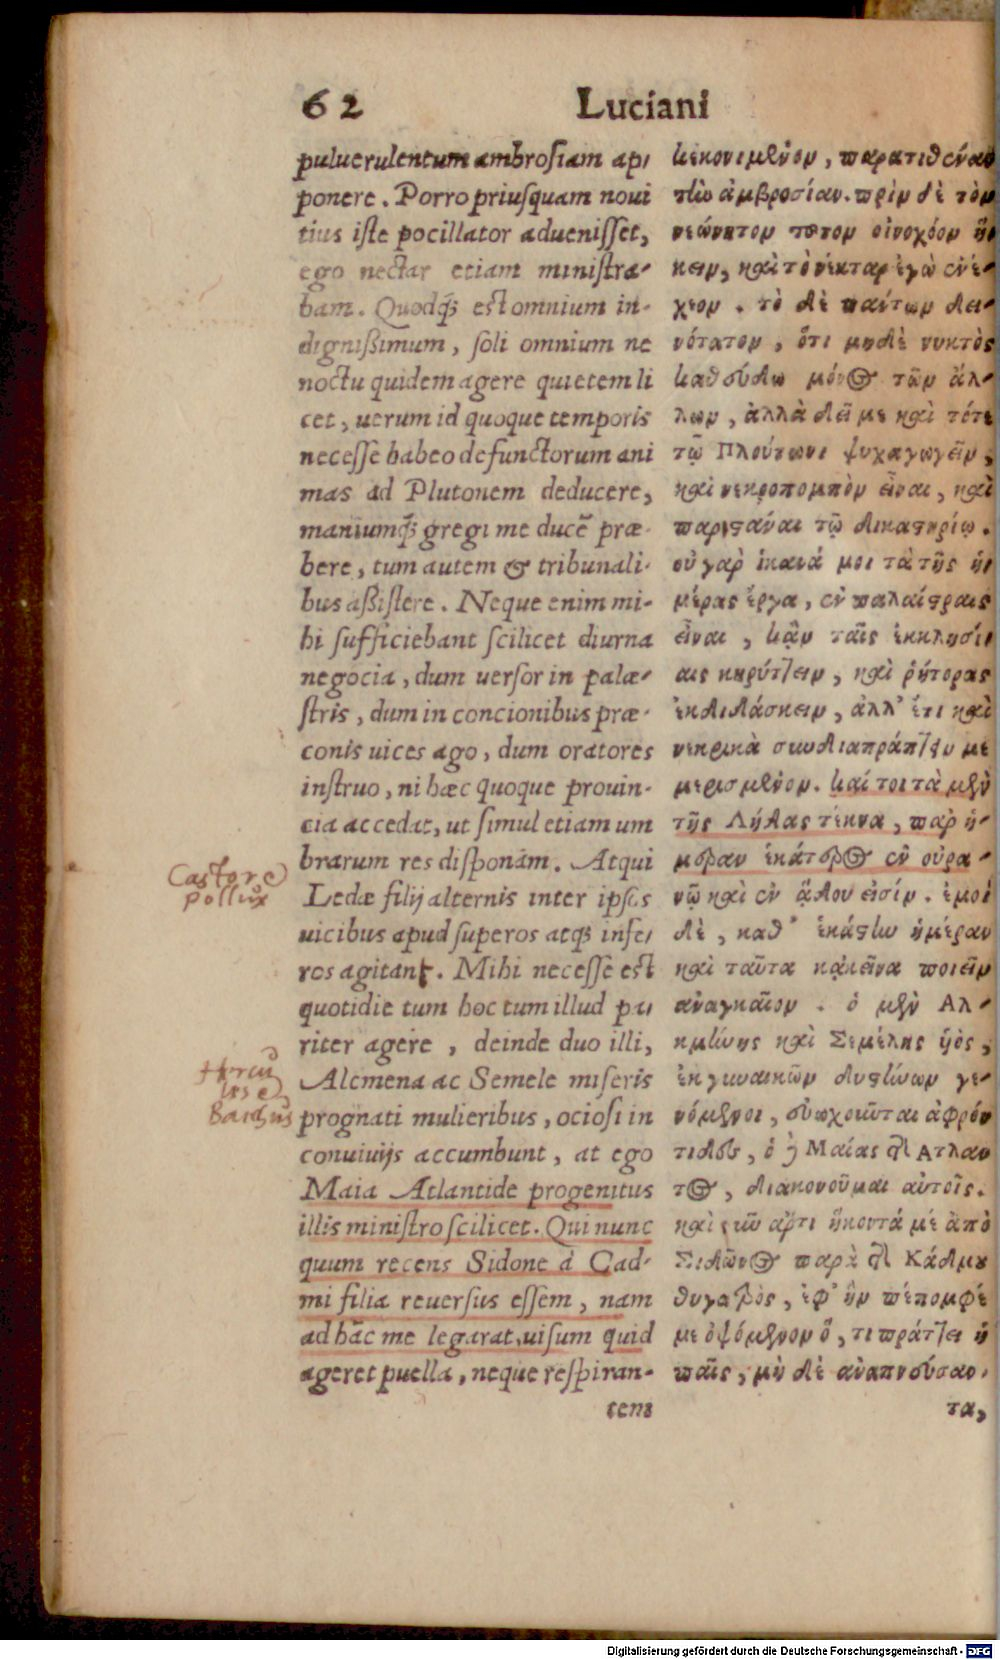 62 Luciani
puluerulentum ambrosiam ap/
ponere. Porro priusquam noui
tius iste pocillator aduenisset,
ego nectar etiam ministra-
bam. Quodq́; est omnium in-
dignißimum, soli omnium ne
noctu quidem agere quietem li
cet, uerum id quoque temporis
necesse habeo defunctorum ani
mas ad Plutonem deducere,
maniumq́; gregi me ducẽ præ-
bere, tum autem & tribunali-
bus aßistere. Neque enim mi-
hi sufficiebant scilicet diurna
negocia, dum uersor in palæ-
stris, dum in concionibus præ-
conis uices ago, dum oratores
instruo, ni hæc quoque prouin-
cia accedat, ut simul etiam um
brarum res disponam. Atqui
Ledæ filij alternis inter ipsos
uicibus apud superos atq; infe/
ros agitant. Mihi necesse est
quotidie tum hoc tum illud pa/
riter agere, deinde duo illi,
Alcmena ac Semele miseris
prognati mulieribus, ociosi in
conuiuijs accumbunt, at ego
Maia Atlantide progenitus
illis ministro scilicet. Qui nunc
quum recens Sidone à Cad-
mi filia reuersus essem, nam
ad hãc me legarat, uisum quid
ageret puella, neque respiran-
tem
κεκονιμένον, παρατιθέναι
τὴν ἀμβροσίαν. πρὶν δὲ τὸν
νεώνητον τοῦτον οἰνοχόον ἥ-
κειν, καὶ τὸ νέκταρ ἐγὼ ἐνέ-
χεον. τὸ δὲ πάντων δει-
νότατον, ὅτι μηδὲ νυκτὸς
καθεύδω μόνος τῶν ἄλ-
λων, ἀλλὰ δεῖ με καὶ τότε
τῷ Πλούτωνι ψυχαγωγεῖν,
καὶ νεκροπομπὸν εἶναι, καὶ
παρεστάναι τῷ δικαστηρίῳ.
οὐ γαρ ἱκανά μοι τὰ τῆς ἡ
μέρας ἔργα, ἐν παλαίστραις
εἶναι, κᾂν ταῖς ἐκκλησί-
αις κηρύττειν, καὶ ῥήτορας
ἐκδιδάσκειν, ἀλλ' ἔτι καὶ
νεκρικὰ συνδιαπράττειν με
μερισμένον. καί τοι τὰ μὲν
τῆς Λήδας τέκνα, παρ' ἡ-
μέραν ἑκάτερος ἐν οὐρα-
νῷ καὶ ἐν ᾅδου εἰσίν. ἐμοὶ
δὲ, καθ' ἑκάστην ἡμέραν
καὶ ταῦτα κᾀκεῖνα ποιεῖν
ἀναγκαῖον. ὁ μὲν Αλ-
κμήνης καὶ Σεμέλης υἱὸς,
ἐκ γυναικῶν δυστήνων γε-
νόμενοι, εὐωχοῦνται ἀφρόν
τιδες, ὁ δὲ Μαίας τῆς Ατλαν
τος, διακονοῦμαι αὐτοῖς.
καὶ νῦν ἄρτι ἥκοντά με ἀπὸ
Σιδῶνος παρὰ τῆς Κάδμου
θυγατρὸς, ἐφ' ἣν πέπομφέ
με ὀψόμενον ὅ, τι πράττει ἡ
παῖς, μὴ δὲ ἀναπνεύσαν-
τα,
Castor e
pollux
Hercu
les e
Bacchus
Digitalisierung gefördert durch die Deutsche Forschungsgemeinschaft - DFG